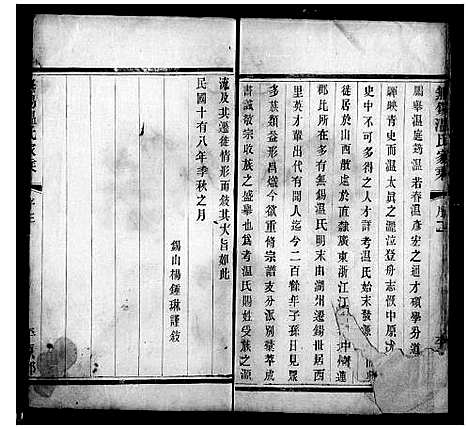 無錫溫氏家乘
陽舉溫庭筠溫若春溫彥宏之通才碩學分道
輝映青史而溫太真之灑泣登舟志恢中原
史中不可多得之人才詳考溫氏始末發源
徙居於山西散處於直隸廣東浙江江
郡比所在多有無錫溫氏明末由湖州遷錫世居西
里英才輩出代有聞人迄今二百餘年子孫日見眾
多族類益形昌熾今欲重修宗譜支分派別彙萃成
書誠敬宗收族之盛舉也爰考溫氏賜姓受族之源
流及其遷徙情形而敘其大旨如此
民國十有八年季秋之月
錫山楊鍾琳謹敘
無錫溫氏家乘